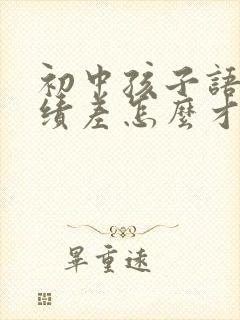 初中孩子語
績差怎麼才
畢重遠